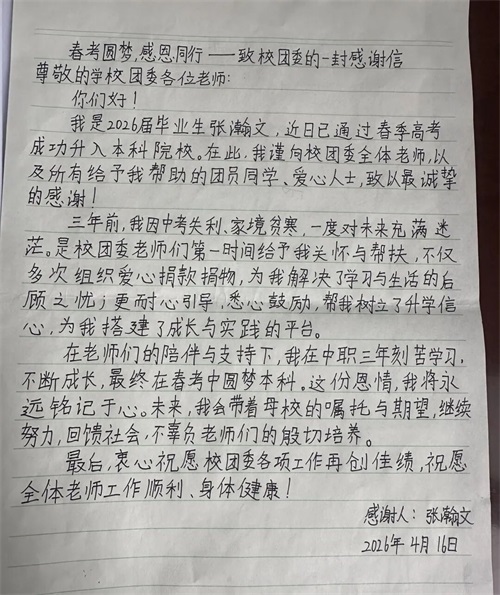 春考圆梦,感恩同行——致校团委的一封感谢信
尊敬的学校团委各位老师:
你们好!
我是2026届毕业生张瀚文,近日已通过春季高考
成功升入本科院校。在此,我谨向校团委全体老师,以
及所有给予我帮助的团员同学、爱心人士,致以最诚挚
的感谢!
三年前,我因中考失利、家境贫寒,一度对未来充满迷
茫。是校团委老师们第一时间给予我关怀与帮扶,不仅
多次组织爱心捐款捐物,为我解决了学习与生活的后
顾之忧;更耐心引导,悉心鼓励,帮我树立了升学信
心,为我搭建了成长与实践的平台。
在老师们的陪伴与支持下,我在中职三年刻苦学习,
不断成长,最终在春考中圆梦本科。这份恩情,我将永
远铭记于心。未来,我会带着母校的嘱托与期望,继续
努力,回馈社会,不辜负老师们的殷切培养。
最后,衷心祝愿校团委各项工作再创佳绩,祝愿
全体老师工作顺利、身体健康!
感谢人:张瀚文
2026年4月16日